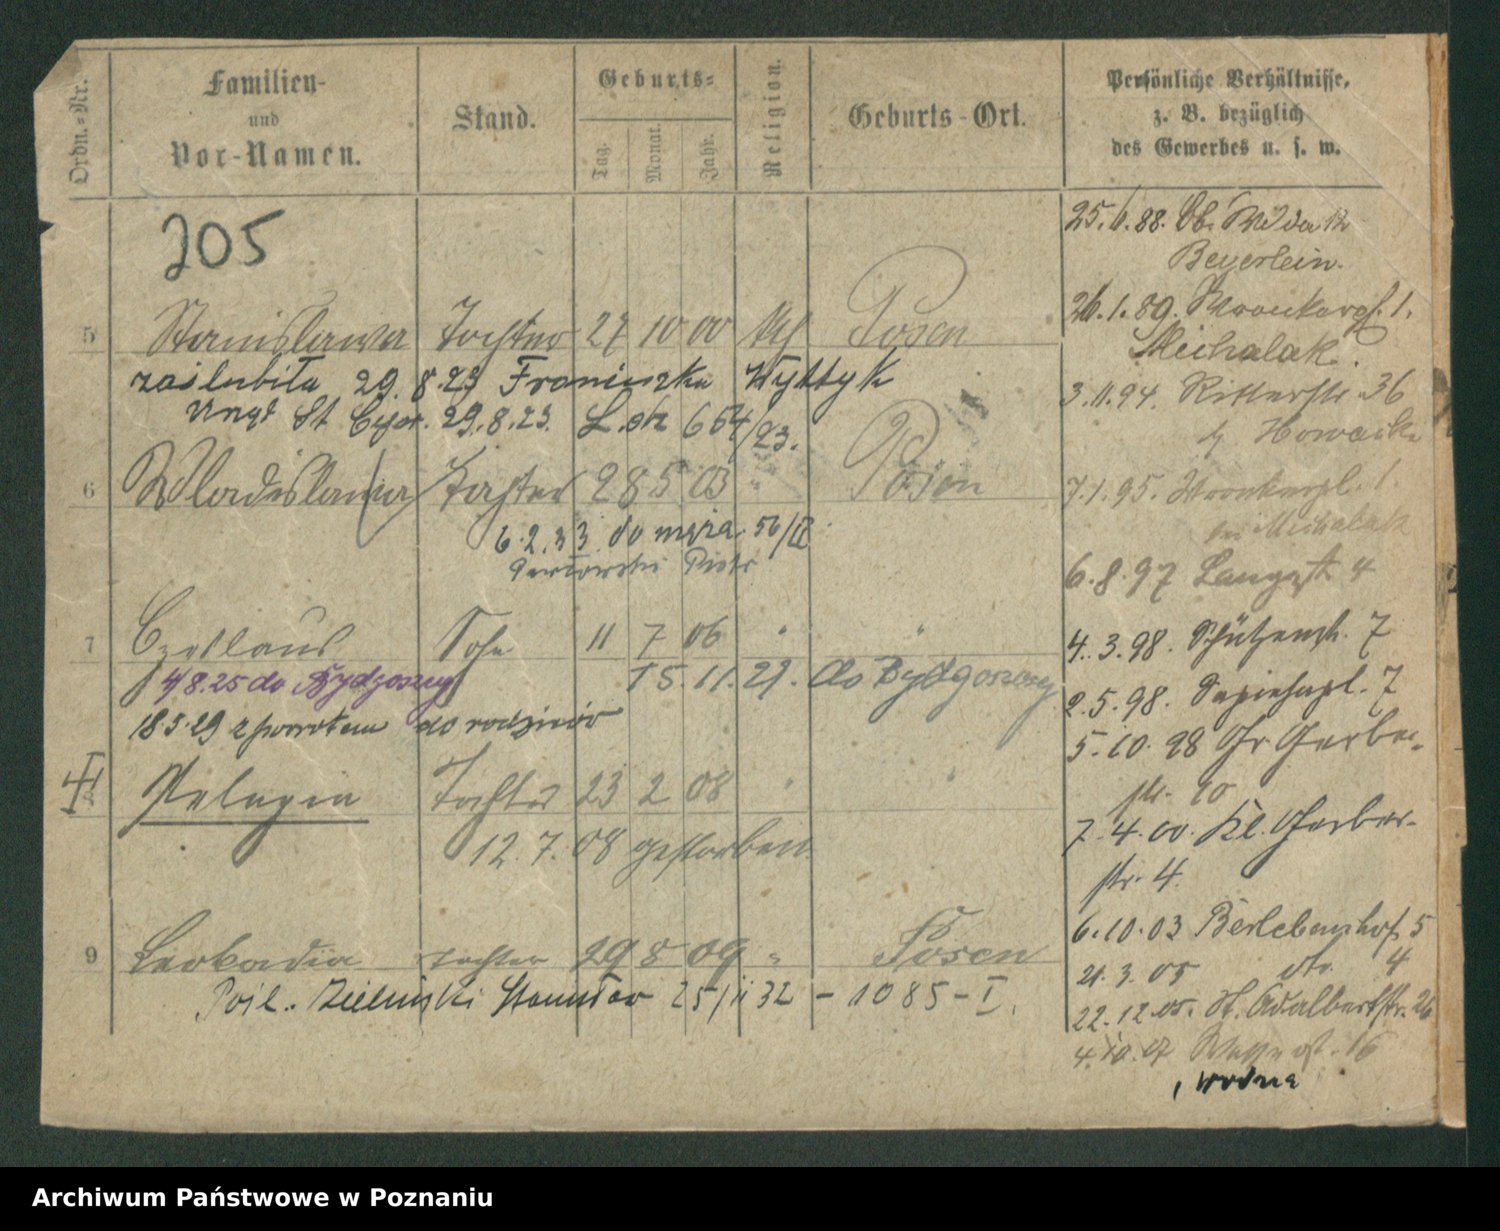 Ordn.-Nr.
Familien-
und
Vor-Namen.
Stand.
Geburts-
Tag.
Monat.
Jahr.
Religion.
Geburts-Ort.
Persönliche Verhältnisse,
z. B. bezüglich
des Gewerbes u. s. w.
205
5 Stanislawa Tochter 27 10 00 Posen
zaślubiła 29.8.23 Franciszka Wyttyk
29.8.23. L. 654/23.
6 Wladislawa Tochter 28 5 03 " Posen
6.2.33. do męża 56/II
Piotr
7 Czeslaus Sohn 11 7 06 " "
4/8.25 do Bydgoszczy 15.11.29. do Bydgoszczy
18.5.29 z powrotem do rodziców
Pelagia Tochter 23 2 08 " "
12.7.08 gestorben.
9 Leokadia Tochter 29 8 09 " Posen
Zieliński Stanisław 25/11 32 - 1085 - I.
25.6.88. Ob. Wilda 12
Beyerlein.
26.1.89. Wronkerpl. 1.
Michalak.
3.11.94. Ritterstr. 36
Nowacka
7.1.95. Wronkerpl. 1.
bei Michalak
6.8.97 Langestr 4
4.3.98. Schützenstr. 7
2.5.98. Sapiehapl. 7
5.10.98 Gr Gerber-
str. 40
7.4.00. Kl. Gerber-
str. 4.
6.10.03 Berlebenshof 5
21.3.05 dto. 4
22.12.05. St. Adalbertstr. 26
4.10.07 Wasserstr. 16
, Wodna
Archiwum Państwowe w Poznaniu